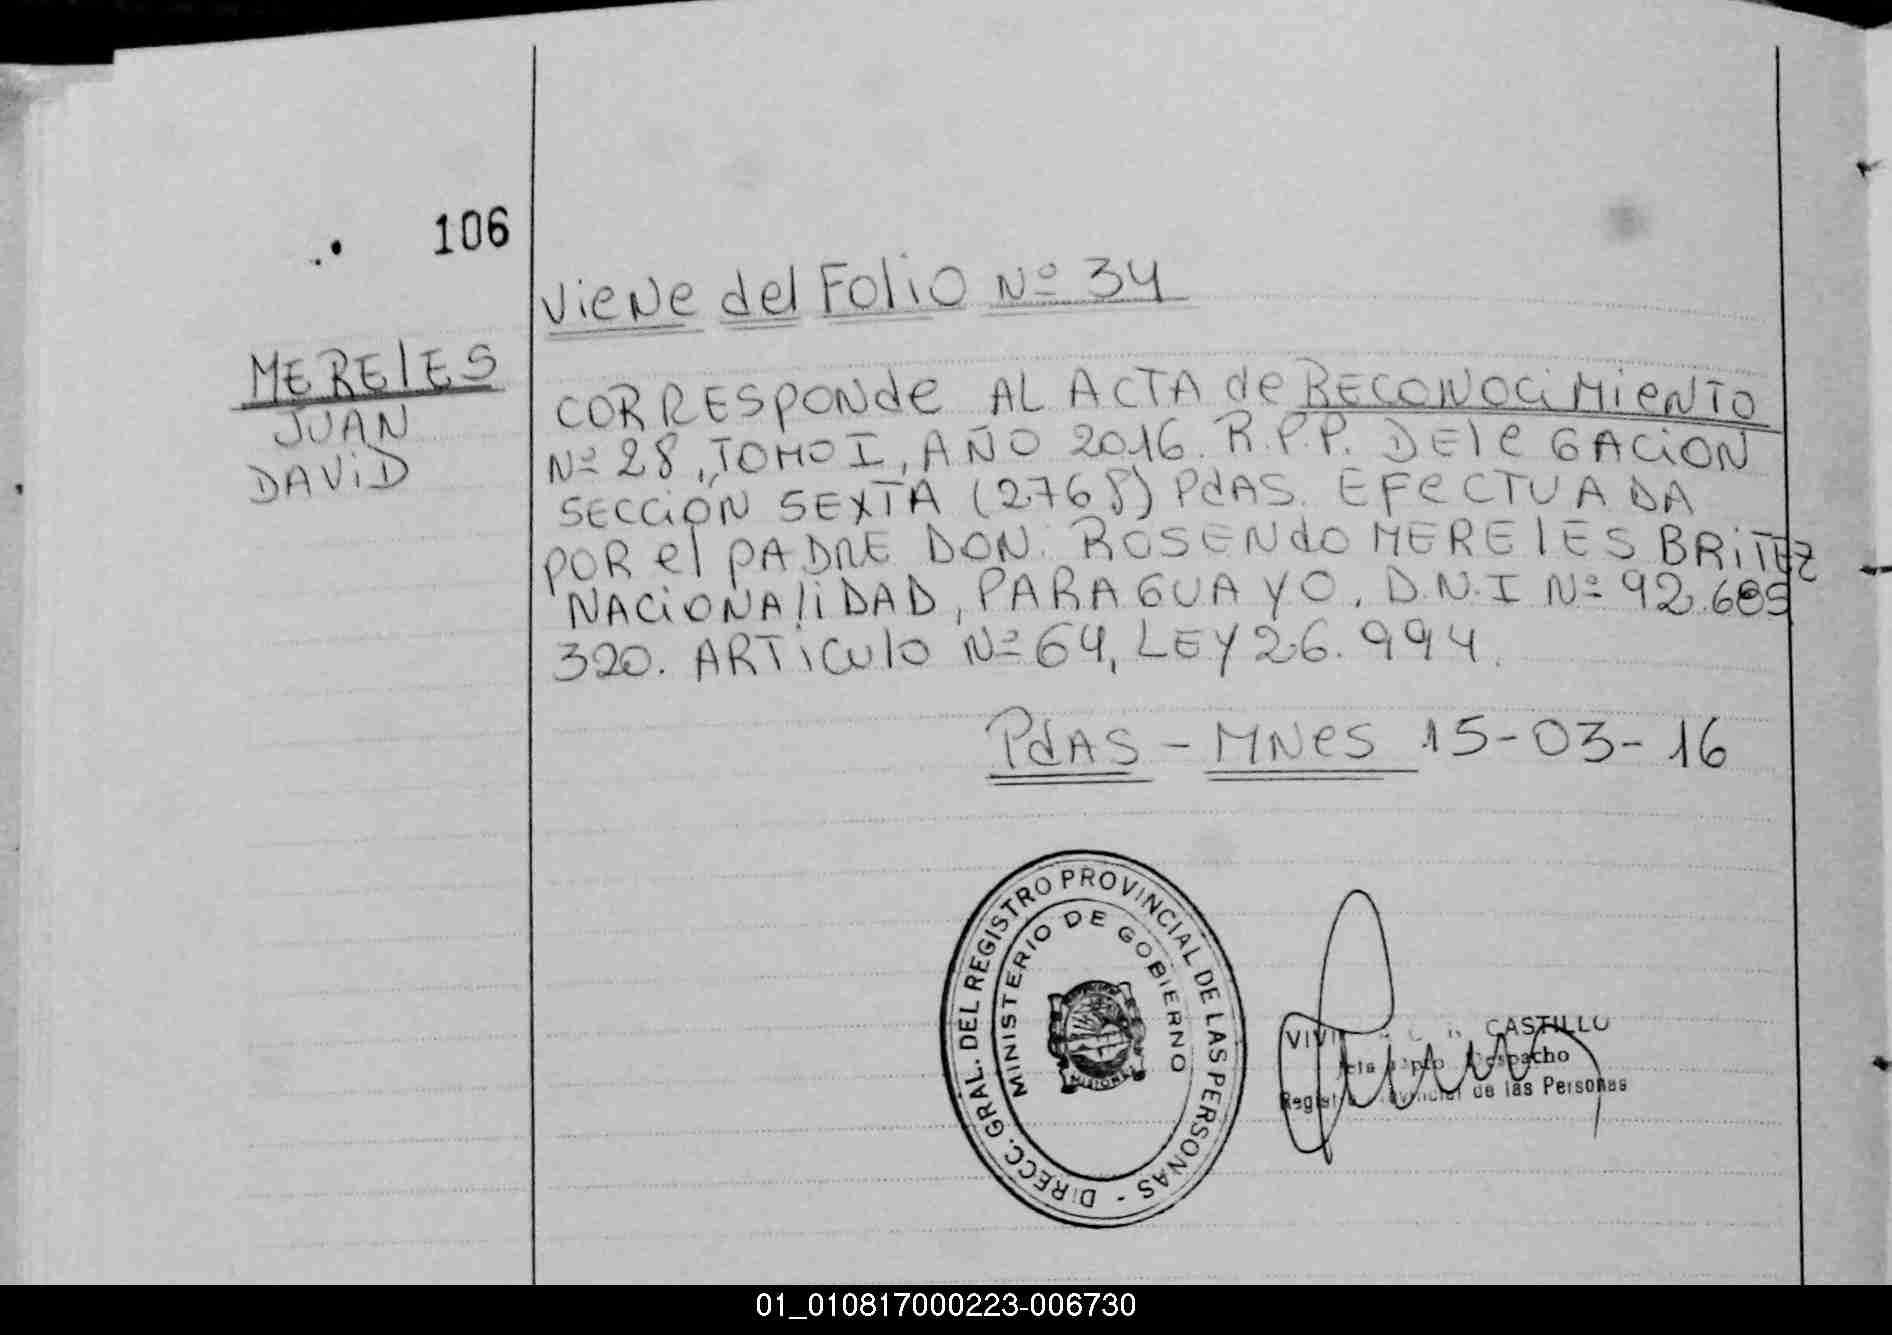 106
Viene del Folio Nº 34
MERELES
JUAN
DAVID
CORRESPONDE AL ACTA de RECONOCIMIENTO
Nº 28, TOMO I, AÑO 2016. R.P.P. DELEGACION
SECCIÓN SEXTA (2768) PdAS. EFECTUADA
POR el PADRE DON. ROSENDO MERELES BRITEZ
NACIONALIDAD, PARAGUAYO, D.N.I Nº 92.685
320. ARTICULO Nº 64, LEY 26.994.
PdAS - MNES 15-03-16
DIRECC. GRAL. DEL REGISTRO PROVINCIAL DE LAS PERSONAS -
MINISTERIO DE GOBIERNO
MISIONES
CASTILLO
Despacho
de las Personas
01_010817000223-006730